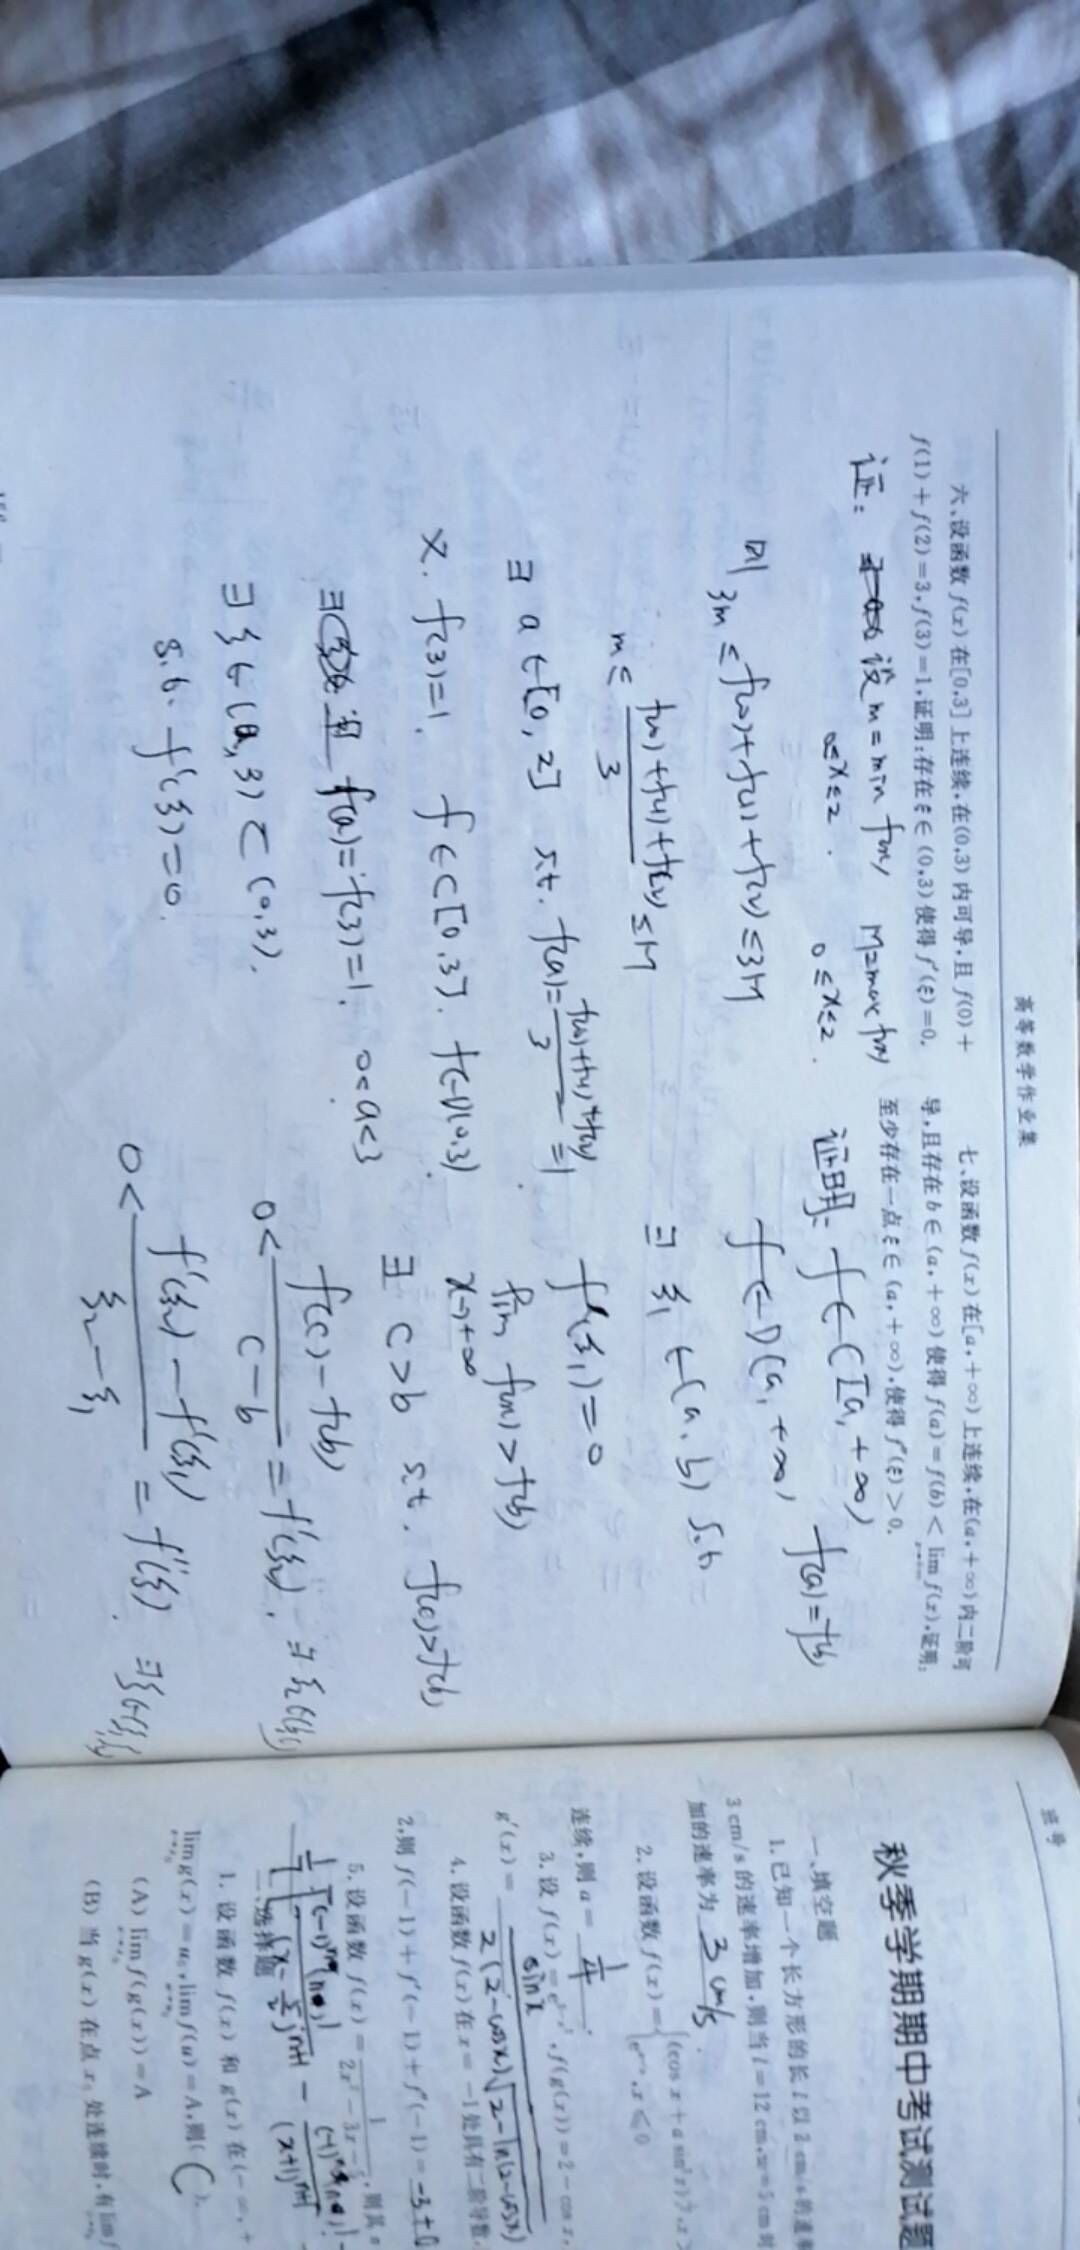 高等数学作业集
六、设函数 f(x) 在[0,3]上连续,在(0,3)内可导,且 f(0)+
f(1)+f(2)=3,f(3)=1,证明:存在 ξ∈(0,3)使得 f′(ξ)=0.
证: 设 m=min f(x) M=max f(x)
0≤x≤2. 0≤x≤2.
则 3m≤f(0)+f(1)+f(2)≤3M
m≤ (f(0)+f(1)+f(2))/3 ≤M
∃ a∈[0,2] s.t. f(a)= (f(0)+f(1)+f(2))/3 =1.
又. f(3)=1. f∈C[0,3]. f∈D(0,3).
f(a)=f(3)=1. 0<a<3
∃ξ∈(a,3)⊂(0,3).
s.t. f′(ξ)=0.
七、设函数 f(x) 在[a,+∞)上连续,在(a,+∞)内二阶可
导,且存在 b∈(a,+∞)使得 f(a)=f(b)< lim f(x),证明:
至少存在一点 ξ∈(a,+∞),使得 f″(ξ)>0.
证明: f∈C[a,+∞)
f∈D(a,+∞) f(a)=f(b)
∃ ξ₁∈(a,b) s.t.
f′(ξ₁)=0
lim f(x)>f(b)
x→+∞
∃ c>b s.t. f(c)>f(b)
0< (f(c)-f(b))/(c-b) =f′(ξ₂).
0< (f′(ξ₂)-f′(ξ₁))/(ξ₂-ξ₁) =f″(ξ).
班号
秋季学期期中考试测试题
一、填空题
1. 已知一个长方形的长 l 以 2 cm/s 的速率
3 cm/s 的速率增加,则当 l=12 cm,w=5 cm 时
加的速率为 3 cm/s.
2. 设函数 f(x)= {(cos x+a sin²x)
x≤0
连续,则 a=
3. 设 f(x)= f(g(x))=2-cos x,
g′(x)= sinx / 2(2-cosx)√2-ln(2-cosx)
4. 设函数 f(x) 在 x=-1 处具有二阶导数,
2,则 f(-1)+f′(-1)+f″(-1)=
5. 设函数 f(x)= 则其 n
二、选择题
1. 设函数 f(x) 和 g(x) 在(-∞,+
lim g(x)=u₀,lim f(u)=A,则( C ).
(A) lim f(g(x))=A
(B) 当 g(x) 在点 x₀ 处连续时,有 lim f